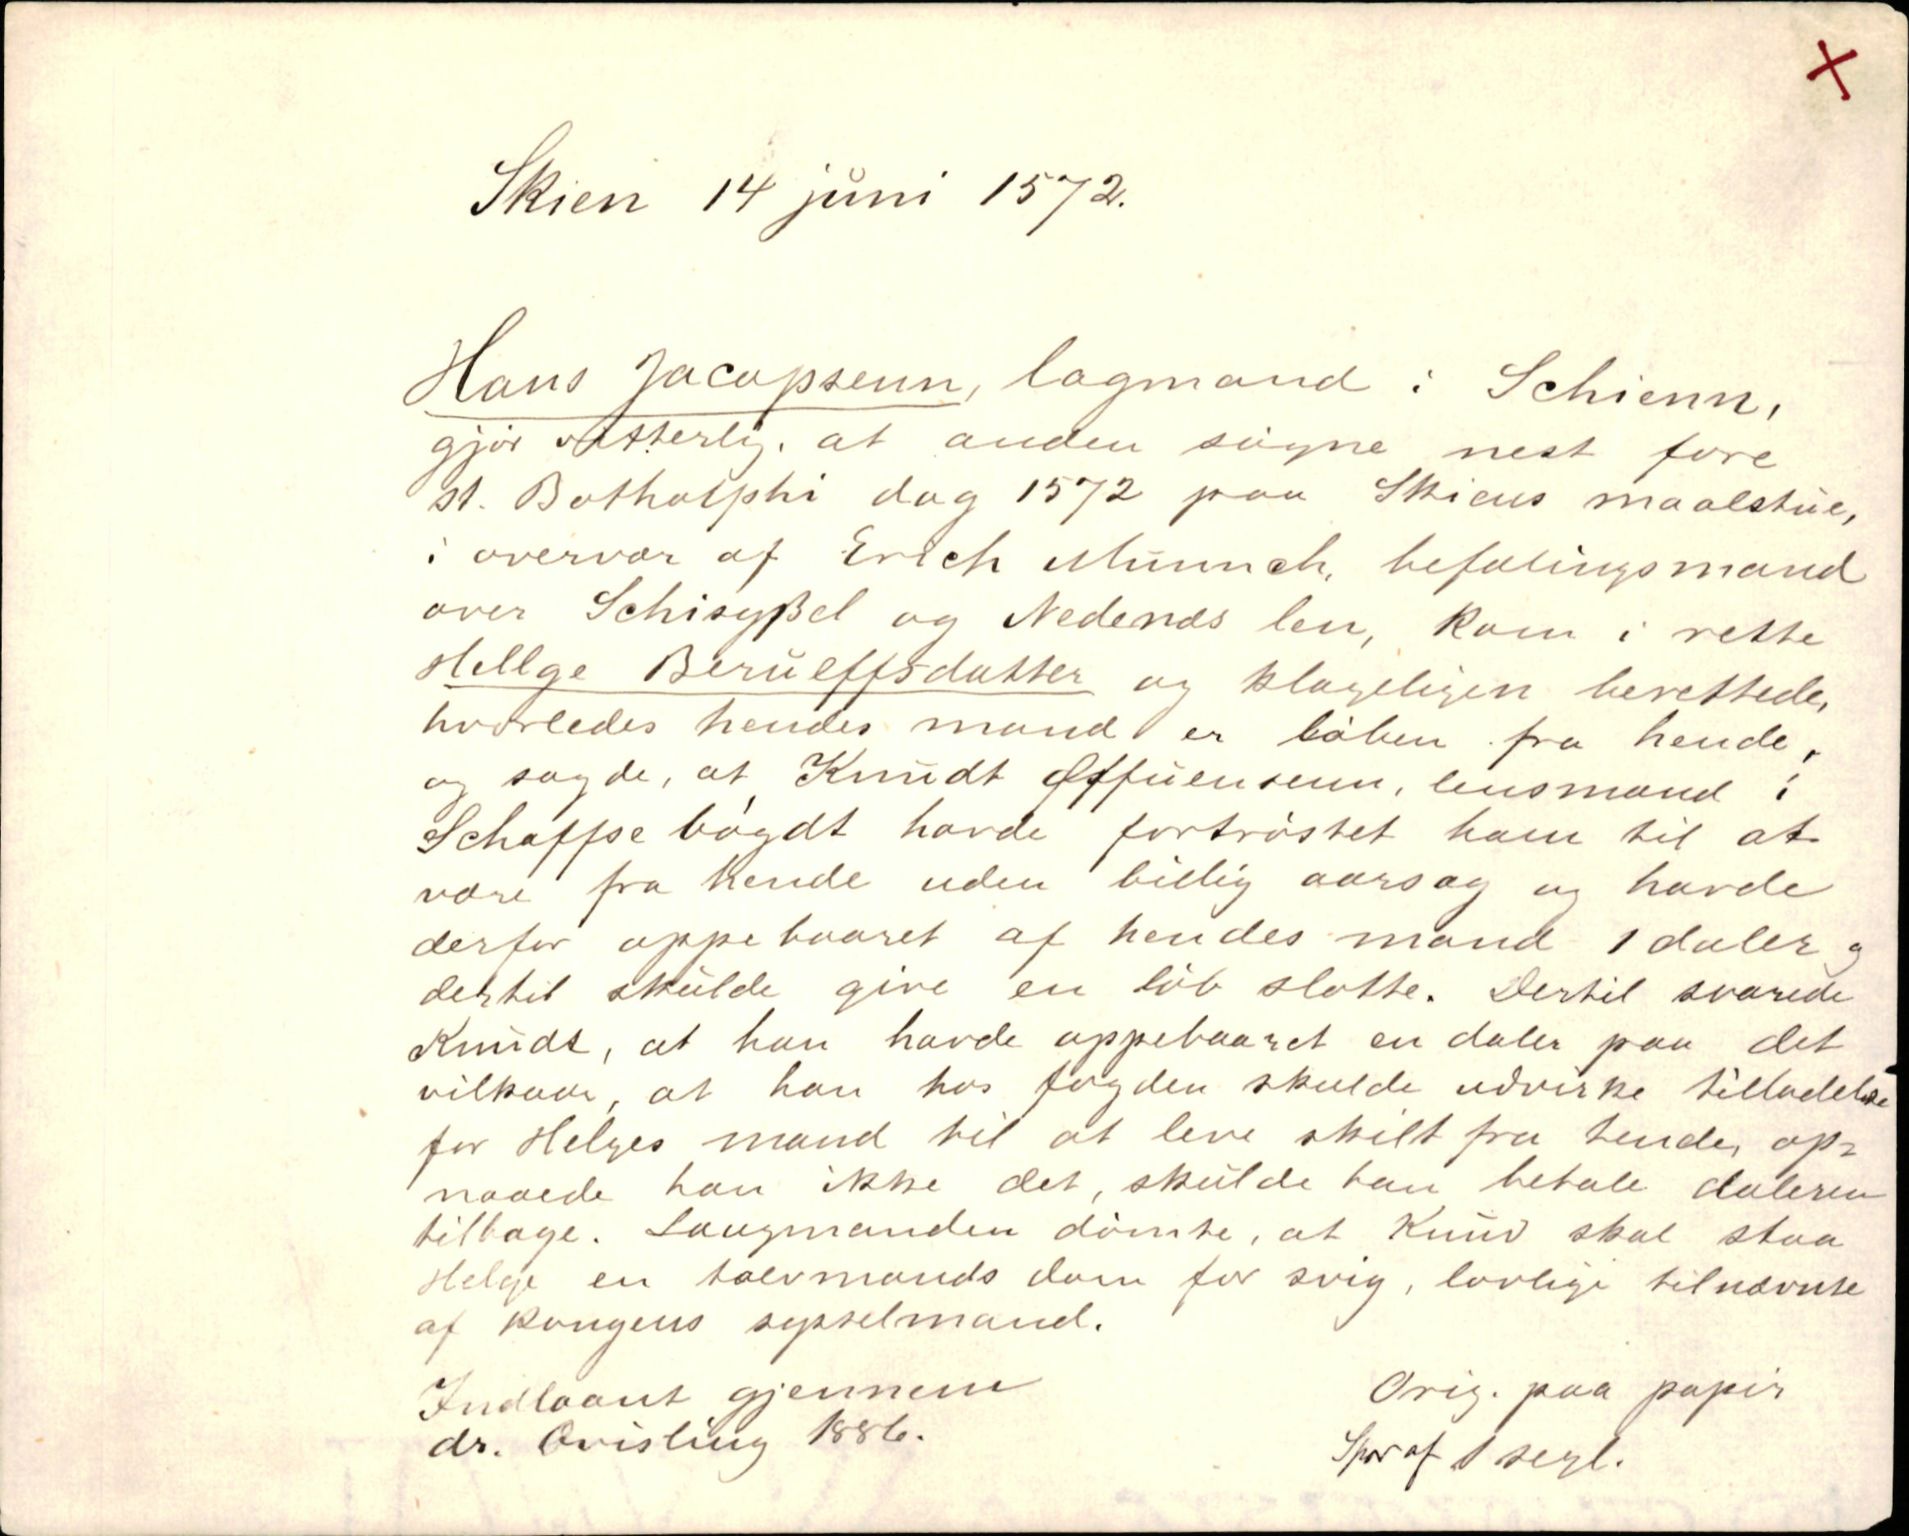 Skien 14 juni 1572.
Hans Jacopsenn, lagmand i Schienn,
gjør vitterlig, at anden søgne nest fore
st. Botholphi dag 1572 paa Skiens maalstue,
i overvær af Erich Munnch, befalingsmand
over Schisyßel og Nedenæs len, kom i rette
Hellge Berulffsdatter og klageligen berettede,
hvorledes hendes mand er løben fra hende,
og sagde, at Knudt Øffuensenn, lensmand i
Schaffse bøgdt havde fortrøstet ham til at
være fra hende uden billig aarsag og havde
derfor oppebaaret af hendes mand 1 daler og
dertil skulde give en løb slotte. Dertil svarede
Knudt, at han havde oppebaaret en daler paa det
vilkaar, at han hos fogden skulde udvirke tilladelse
for Helges mand til at leve skilt fra hende, op-
naaede han ikke det, skulde han betale daleren
tilbage. Laugmanden dømte, at Knud skal staa
Helge en tolvmands dom for svig, lovlige tilnævnte
af kongens sysselmand.
Indlaant gjennem
dr. Qvisling 1886.
Orig. paa papir
Spor af 1 segl.